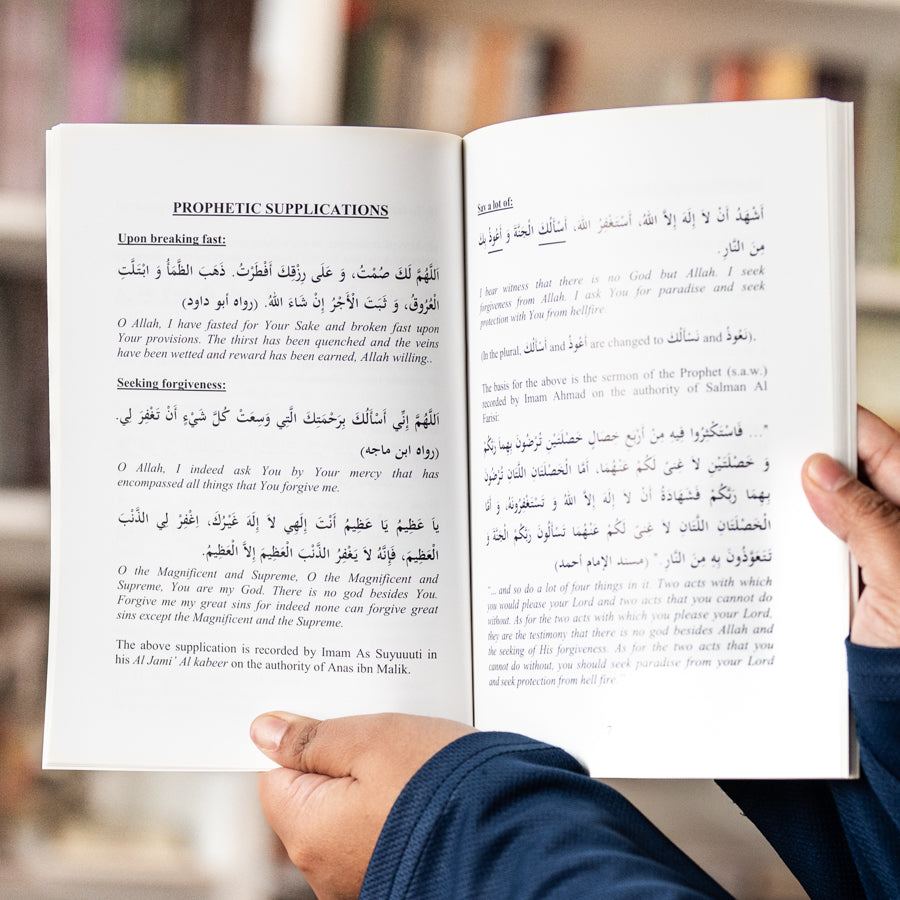 PROPHETIC SUPPLICATIONS
Upon breaking fast:
اَللَّهُمَّ لَكَ صُمْتُ، وَ عَلَى رِزْقِكَ أَفْطَرْتُ. ذَهَبَ الظَّمَأُ وَ ابْتَلَّتِ
الْعُرُوقُ، وَ ثَبَتَ الْأَجْرُ إِنْ شَاءَ اللهُ. (رواه أبو داود)
O Allah, I have fasted for Your Sake and broken fast upon
Your provisions. The thirst has been quenched and the veins
have been wetted and reward has been earned, Allah willing..
Seeking forgiveness:
اَللَّهُمَّ إِنِّي أَسْأَلُكَ بِرَحْمَتِكَ الَّتِي وَسِعَتْ كُلَّ شَيْءٍ أَنْ تَغْفِرَ لِي.
(رواه ابن ماجه)
O Allah, I indeed ask You by Your mercy that has
encompassed all things that You forgive me.
يَا عَظِيمُ يَا عَظِيمُ أَنْتَ إِلَهِي لاَ إِلَهَ غَيْرُكَ، اِغْفِرْ لِي الذَّنْبَ
الْعَظِيمَ، فَإِنَّهُ لاَ يَغْفِرُ الذَّنْبَ الْعَظِيمَ إِلاَّ الْعَظِيمُ.
O the Magnificent and Supreme, O the Magnificent and
Supreme, You are my God. There is no god besides You.
Forgive me my great sins for indeed none can forgive great
sins except the Magnificent and the Supreme.
The above supplication is recorded by Imam As Suyuuti in
his Al Jami' Al kabeer on the authority of Anas ibn Malik.
Say a lot of:
أَشْهَدُ أَنْ لاَ إِلَهَ إِلاَّ اللهُ، أَسْتَغْفِرُ اللهَ، أَسْأَلُكَ الْجَنَّةَ وَ أَعُوذُ بِكَ
مِنَ النَّارِ.
I bear witness that there is no God but Allah. I seek
forgiveness from Allah. I ask You for paradise and seek
protection with You from hellfire.
(In the plural, أَسْأَلُكَ and أَعُوذُ are changed to نَسْأَلُكَ and نَعُوذُ).
The basis for the above is the sermon of the Prophet (s.a.w.)
recorded by Imam Ahmad on the authority of Salman Al
Farisi:
"... فَاسْتَكْثِرُوا فِيهِ مِنْ أَرْبَعِ خِصَالٍ خَصْلَتَيْنِ تُرْضُونَ بِهِمَا رَبَّكُمْ
وَ خَصْلَتَيْنِ لاَ غِنَى لَكُمْ عَنْهُمَا. أَمَّا الْخَصْلَتَانِ اللَّتَانِ تُرْضُونَ
بِهِمَا رَبَّكُمْ فَشَهَادَةُ أَنْ لاَ إِلَهَ إِلاَّ اللهُ وَ تَسْتَغْفِرُونَهُ، وَ أَمَّا
الْخَصْلَتَانِ اللَّتَانِ لاَ غِنَى لَكُمْ عَنْهُمَا تَسْأَلُونَ رَبَّكُمُ الْجَنَّةَ وَ
تَتَعَوَّذُونَ بِهِ مِنَ النَّارِ." (مسند الإمام أحمد)
"... and so do a lot of four things in it. Two acts with which
you would please your Lord and two acts that you cannot do
without. As for the two acts with which you please your Lord,
they are the testimony that there is no god besides Allah and
the seeking of His forgiveness. As for the two acts that you
cannot do without, you should seek paradise from your Lord
and seek protection from hell fire."
7